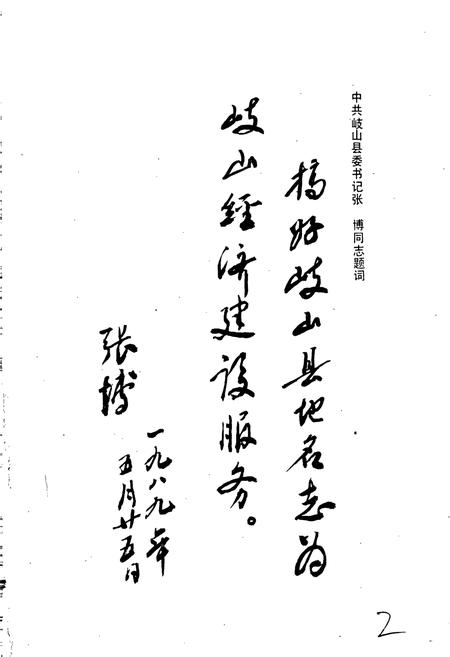 中共岐山县委书记张 博同志题词
搞好岐山县地名志为
岐山经济建设服务。
张博
一九八九年
五月廿五日
2